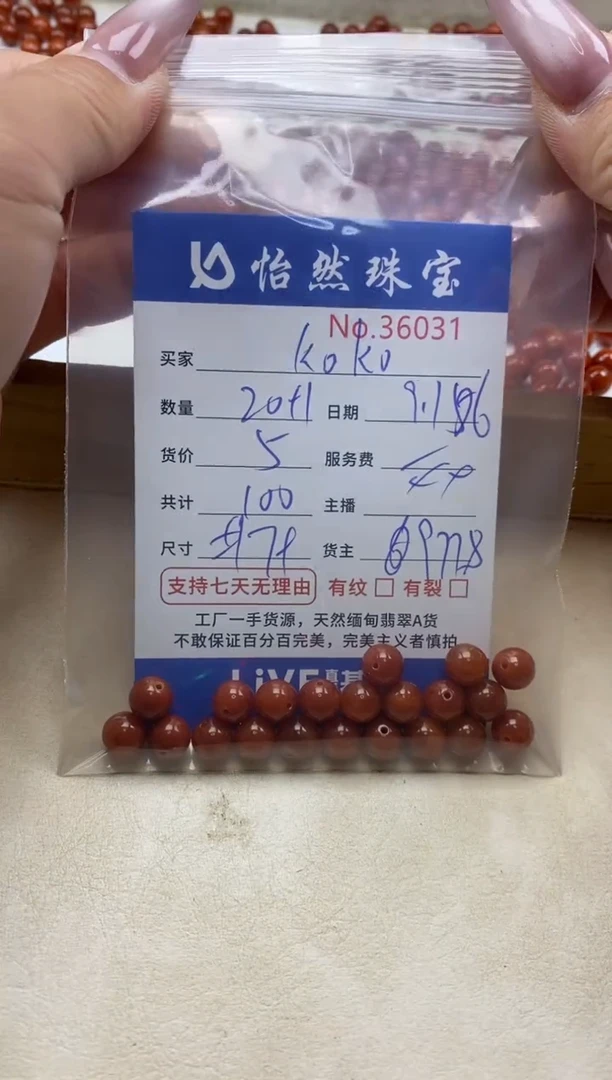 怡然珠宝
No.36031
买家 koko
数量 20+1 日期
货价 5 服务费
共计 100 主播
尺寸 货主
支持七天无理由 有纹 有裂
工厂一手货源，天然缅甸翡翠A货
不敢保证百分百完美，完美主义者慎拍
LiVE